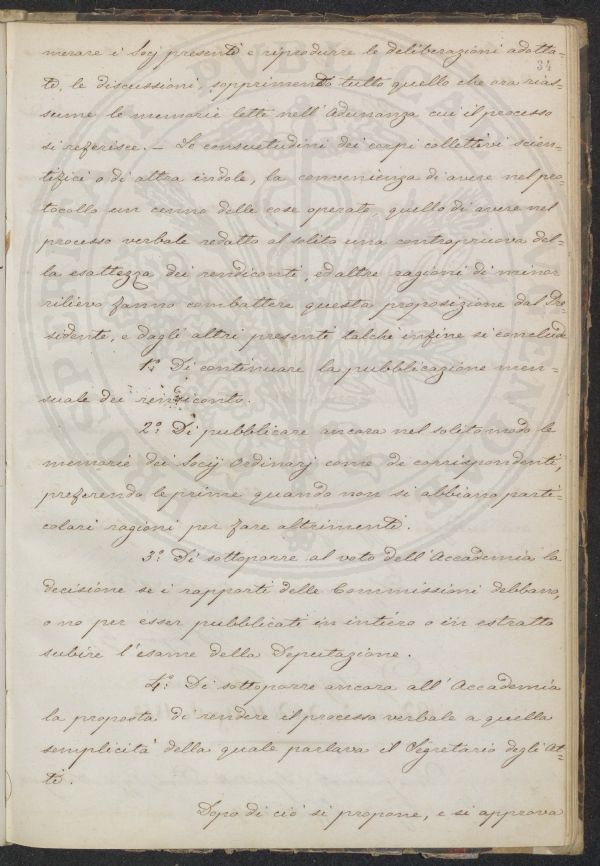 34
merare i Socj presenti e riprodurre le deliberazioni adotta-
te, le discussioni, sopprimendo tutto quello che ora rias-
sume le memorie lette nell'Adunanza cui il processo
si referisce. — Le consuetudini dei corpi collettivi scien-
tifici o di altra indole, la convenienza di avere nel pro-
tocollo un cenno delle cose operate, quello di avere nel
processo verbale redatto al solito una contropruova del-
la esattezza dei rendiconti, ed altre ragioni di minor
rilievo fanno combattere questa proposizione dal Pre-
sidente, e dagli altri presenti talchè infine si conclude
1.° Di continuare la pubblicazione men-
suale dei rendiconto.
2.° Di pubblicare ancora nel solito modo le
memorie dei Socij Ordinarj come de corrispondenti,
preferendo le prime quando non si abbiano parti-
colari ragioni per fare altrimenti.
3.° Di sottoporre al voto dell'Accademia la
decisione se i rapporti delle Commissioni debbano,
o no per esser pubblicati in intiero o in estratto
subire l'esame della Deputazione.
4.° Di sottoporre ancora all'Accademia
la proposta di rendere il processo verbale a quella
semplicità della quale parlava il Segretario degli At-
ti.
Dopo di ciò si propone, e si approva
PROSPERITATI PUBLICAE AUGENDAE